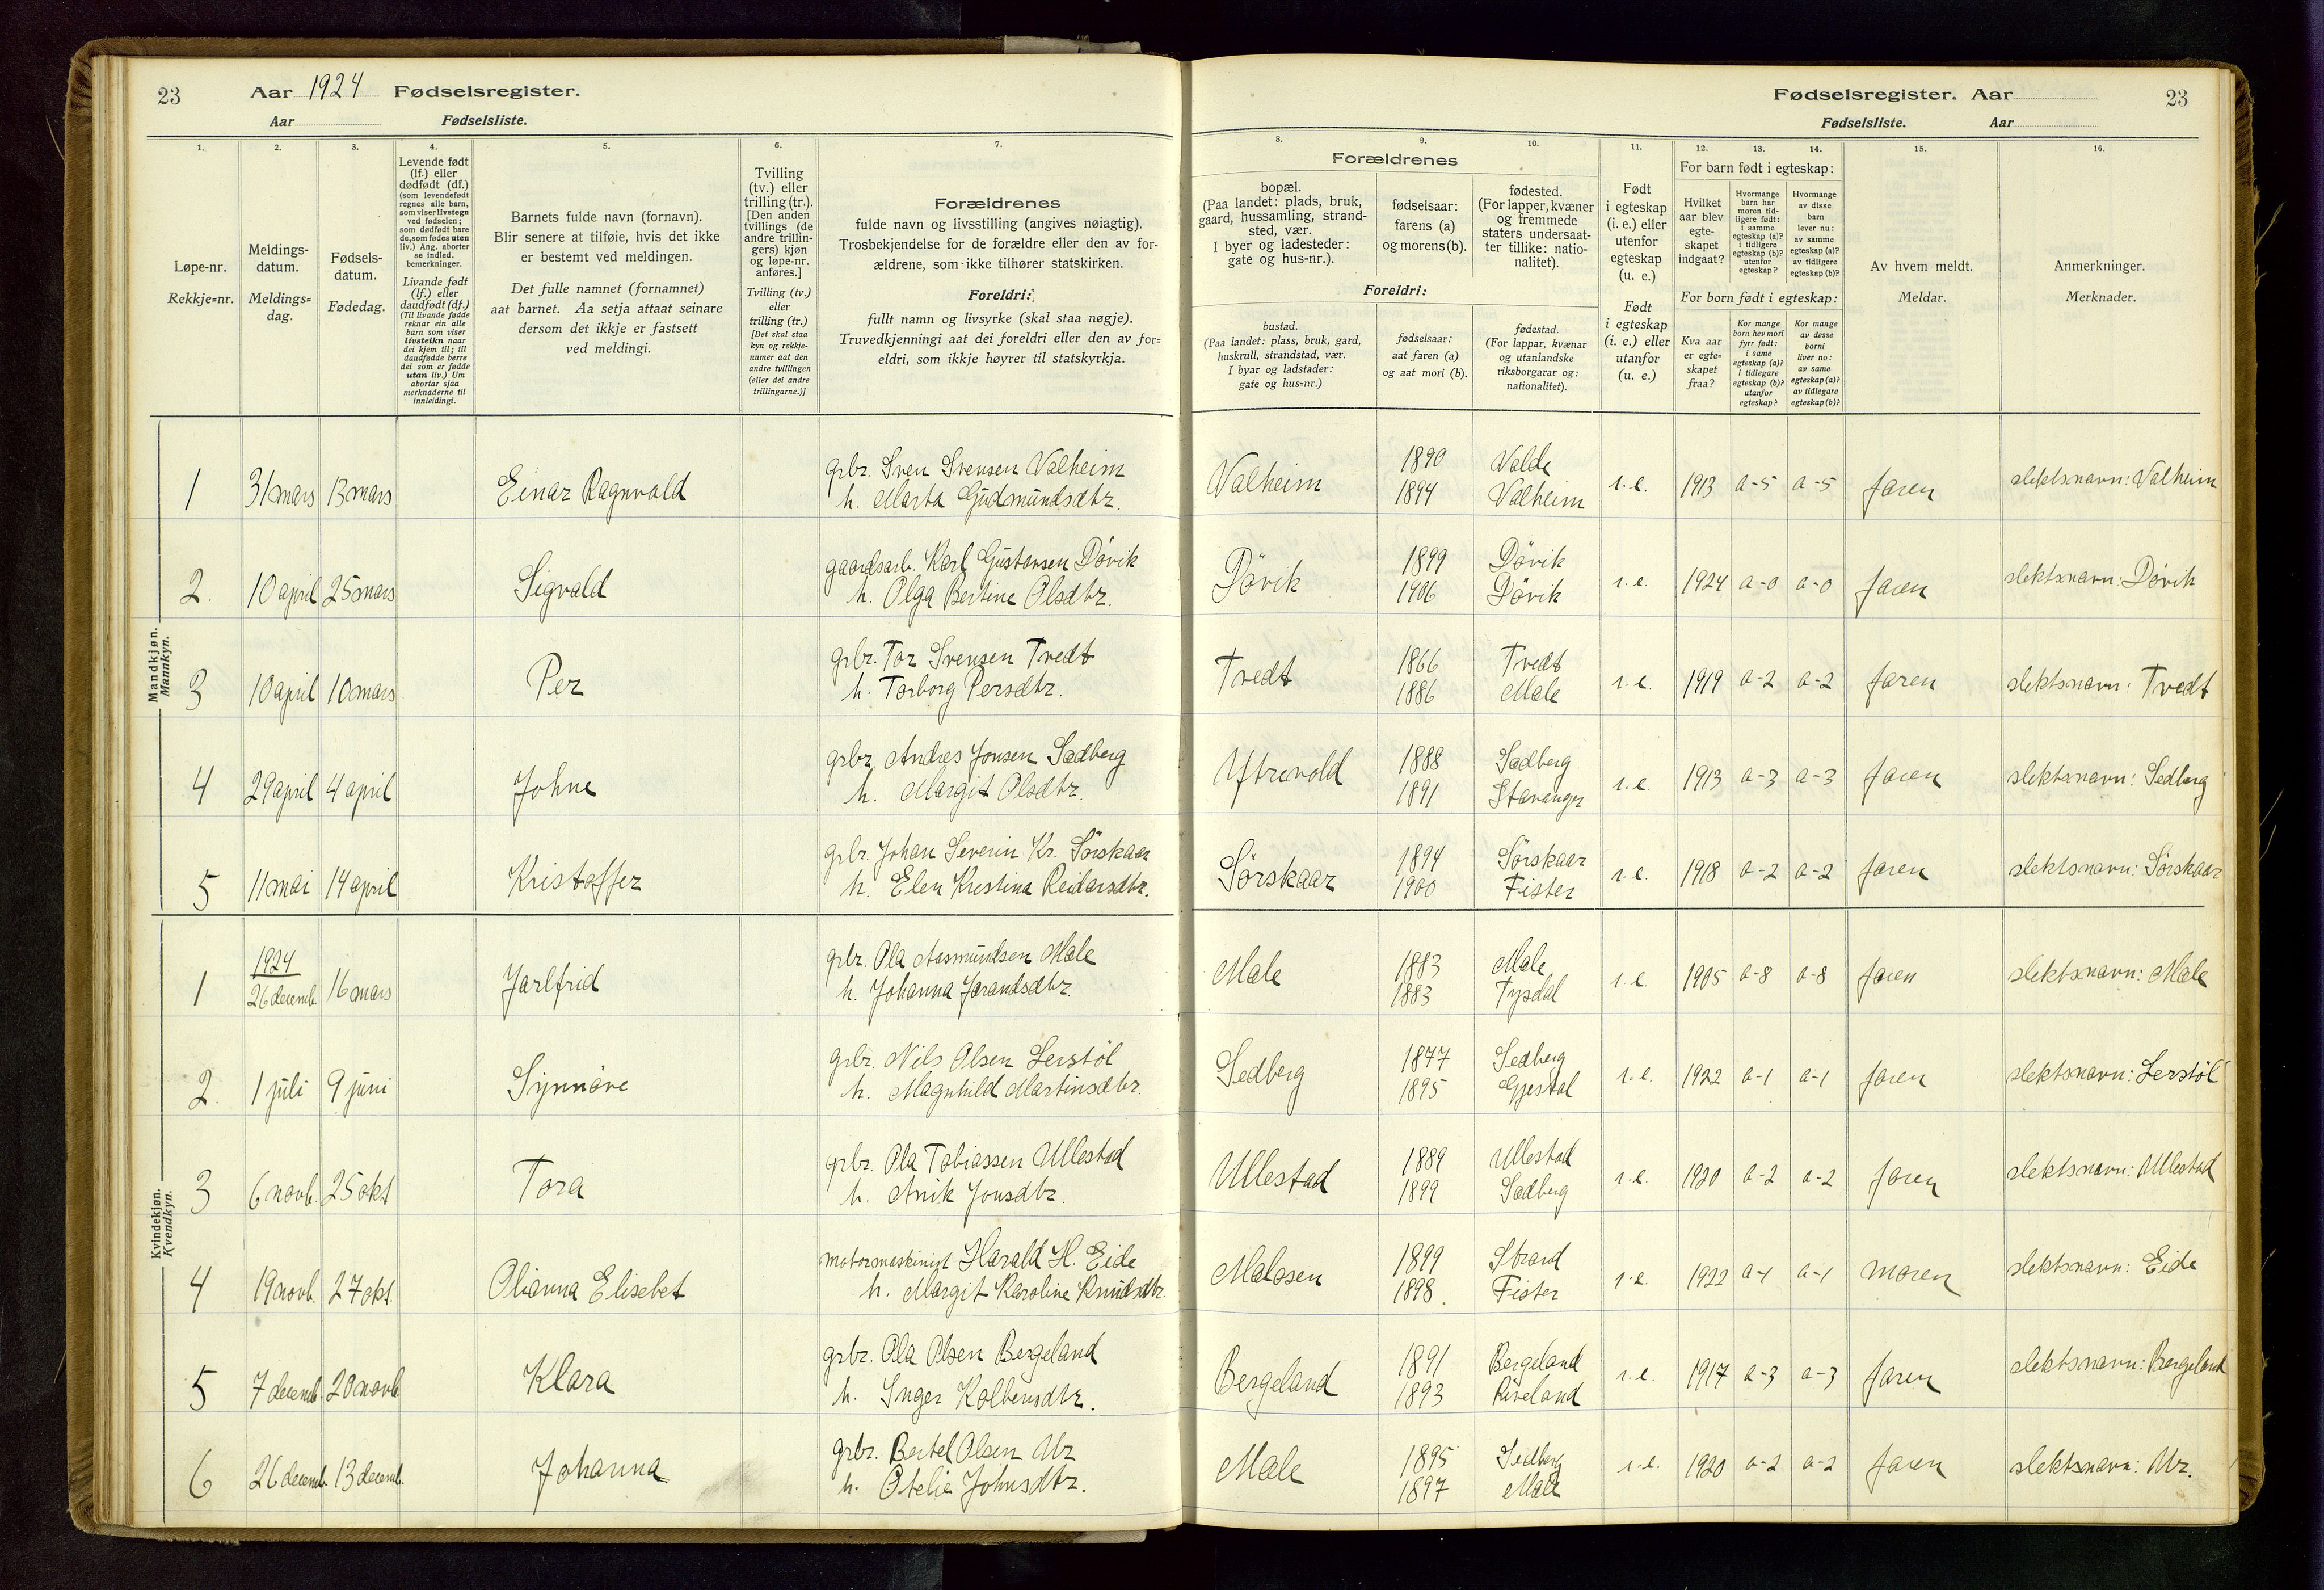 23 Aar 1924 Fødselsregister.
Aar Fødselsliste.
Fødselsregister. Aar 23
Fødselsliste. Aar
1. 2. 3. 4. 5. 6. 7.
Løpe-nr.
Rekkje=nr.
Meldings-
datum.
Meldings=
dag.
Fødsels-
datum.
Fødedag.
Levende født
(lf.) eller
dødfødt (df.)
(som levendefødt
regnes alle barn,
som viser livstegn
ved fødselen;
som dødfødt bare
de, som fødes uten
liv.) Ang. aborter
se indled.
bemerkninger.
Livande født
(lf.) eller
daudfødt (df.)
(Til livande fødde
reknar ein alle
barn som viser
livsteikn naar
dei kjem til; til
daudfødde berre
dei som er fødde
utan liv.) Um
abortar sjaa
merknaderne til
innleidingi.
Barnets fulde navn (fornavn).
Blir senere at tilføie, hvis det ikke
er bestemt ved meldingen.
Det fulle namnet (fornamnet)
aat barnet. Aa setja attaat seinare
dersom det ikkje er fastsett
ved meldingi.
Tvilling
(tv.) eller
trilling (tr.).
[Den anden
tvillings (de
andre trillin-
gers) kjøn
og løpe-nr.
anføres.]
Tvilling (tv.)
eller
trilling (tr.)
[Det skal staa
kyn og rekkje-
numer aat den
andre tvillingen
(eller dei andre
trillingarne.)]
Forældrenes
fulde navn og livsstilling (angives nøiagtig).
Trosbekjendelse for de forældre eller den av for-
ældrene, som ikke tilhører statskirken.
Foreldri:
fullt namn og livsyrke (skal staa nøgje).
Truvedkjenningi aat dei foreldri eller den av for=
eldri, som ikkje høyrer til statskyrkja.
8. 9. 10. 11. 12. 13. 14. 15. 16.
Forældrenes
bopæl.
(Paa landet: plads, bruk,
gaard, hussamling, strand-
sted, vær.
I byer og ladesteder:
gate og hus-nr.).
fødselsaar:
farens (a)
og morens (b).
fødested.
(For lapper, kvæner
og fremmede
staters undersaat-
ter tillike: natio-
nalitet).
Foreldri:
bustad.
(Paa landet: plass, bruk, gard,
huskrull, strandstad, vær.
I byar og ladstader:
gate og hus=nr.)
fødselsaar:
aat faren (a)
og aat mori (b).
fødestad.
(For lappar, kvænar
og utanlandske
riksborgarar og:
nationalitet).
Født
i egteskap
(i. e.) eller
utenfor
egteskap
(u. e.)
Født
i egteskap
(i. e.) eller
utanfor
(u. e.)
For barn født i egteskap:
Hvilket
aar blev
egte-
skapet
indgaat?
Hvormange
barn har
moren tid-
ligere født:
i samme
egteskap (a)?
i tidligere
egteskap (b)?
utenfor
egteskap?
Hvormange
av disse
barn
lever nu:
av samme
egteskap (a)?
av tidligere
egteskap (b)?
For born født i egteskap:
Kva aar
er egte=
skapet
fraa?
Kor mange
born hev mori
fyrr født:
i same
egteskap (a)?
i tidlegare
egteskap (b)?
utanfor
egteskap?
Kor mange
av desse
borni
liver no:
av same
egteskap (a)?
av tidlegare
egteskap (b)?
Av hvem meldt.
Meldar.
Anmerkninger.
Merknader.
Mandkjøn.
Mannkyn.
1 31 mars 13 mars Einar Ragnvald grbr. Sven Svensen Valheim
h. Marta Gudmundsdtr.
Valheim 1890 Valde
1894 Valheim i. e. 1913 a-5 a-5 faren slektsnavn: Valheim
2. 10 april 25 mars Sigvald gaardsarb. Karl Gustavsen Døvik
h. Olga Bertine Olsdtr.
Døvik 1899 Døvik
1906 Døvik i. e. 1924 a-0 a-0 faren slektsnavn: Døvik
3 10 april 10 mars Per grbr. Tor Svensen Tvedt
h. Torborg Persdtr.
Tvedt 1866 Tvedt
1886 Male i. e. 1919 a-2 a-2 faren slektsnavn: Tvedt
4 29 april 4 april Johne grbr. Andres Jonsen Sedberg
h. Margit Olsdtr.
Ytrevold 1888 Sedberg
1891 Stavanger i. e. 1913 a-3 a-3 faren slektsnavn: Sedberg
5 11 mai 14 april Kristoffer grbr. Johan Severin Kr. Sørskaar
h. Elen Kristina Reidarsdtr.
Sørskaar 1894 Sørskaar
1900 Fister i. e. 1918 a-2 a-2 faren slektsnavn: Sørskaar
Kvindekjøn.
Kvendkyn.
1 1924
26 decemb. 16 mars Jarlfrid grbr. Ola Aasmundsen Male
h. Johanna Jørandsdtr.
Male 1883 Male
1883 Tysdal i. e. 1905 a-8 a-8 faren slektsnavn: Male
2. 1 juli 9 juni Synnøve grbr. Nils Olsen Lerstøl
h. Magnhild Martinsdtr.
Sedberg 1877 Sedberg
1895 Gjestal i. e. 1922 a-1 a-1 faren slektsnavn: Lerstøl
3 6 novb. 25 okt Tora grbr. Ola Tobiassen Ullestad
h. Anik Jonsdtr.
Ullestad 1889 Ullestad
1899 Sedberg i. e. 1920 a-2 a-2 faren slektsnavn: Ullestad
4 19 novb. 27 okt. Olianna Elisebet motormaskinist Harald H. Eide
h. Margit Karoline Knudsdtr.
Malosen 1899 Strand
1898. Fister i. e. 1922 a-1 a-1 moren slektsnavn: Eide
5 7 decemb. 20 novb. Klara grbr. Ola Olsen Bergeland
h. Inger Kolbensdtr.
Bergeland 1891 Bergeland
1893 Riveland i. e. 1917 a-3 a-3 faren slektsnavn: Bergeland
6 26 decemb. 13 decemb. Johanna grbr. Bertel Olsen Ur
h. Otelie Johnsdtr.
Male 1895 Sedberg
1897 Male i. e. 1920 a-2 a-2 faren slektsnavn: Ur.